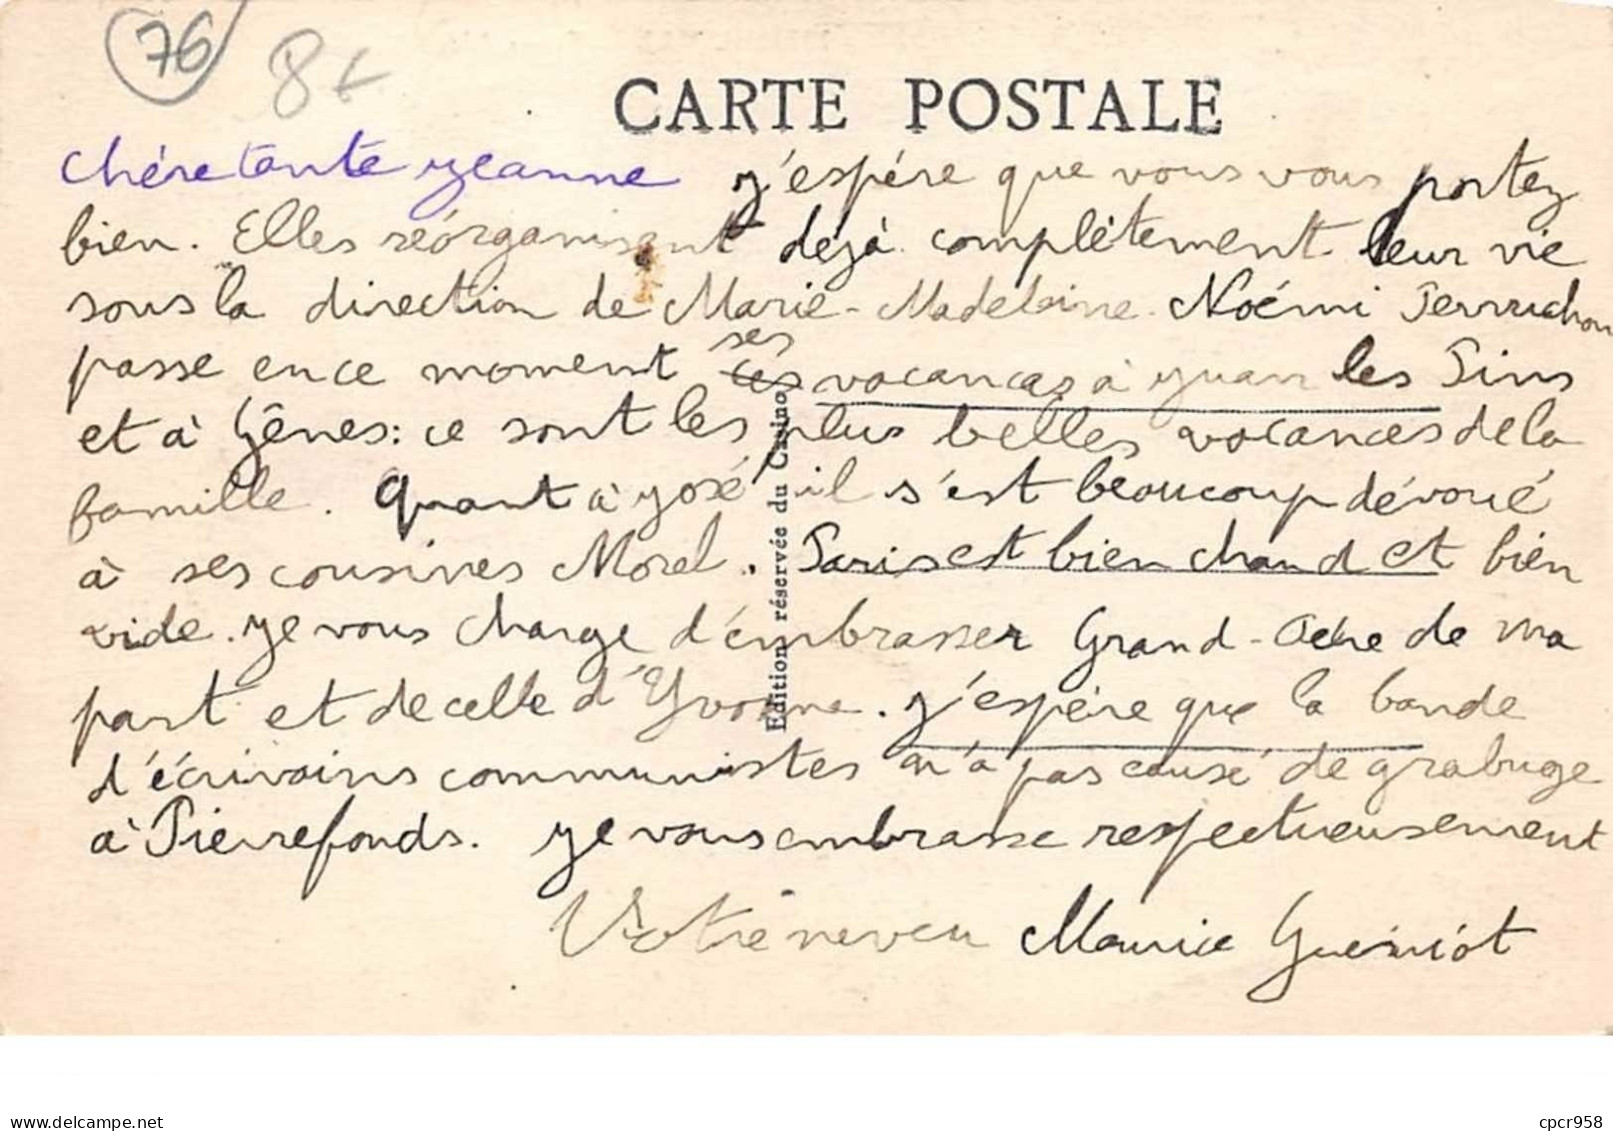 76
8€
CARTE POSTALE
Chère tante Jeanne J'espère que vous vous portez
bien. Elles réorganisent déjà complètement leur vie
sous la direction de Marie-Madeleine. Noémi Perruchon
passe en ce moment ces ses vacances à Juan les Pins
et à Gênes: ce sont les plus belles vacances de la
famille. Quant à José il s'est beaucoup dévoué
à ses cousines Morel. Paris est bien chaud et bien
vide. Je vous charge d'embrasser Grand-Mère de ma
part et de celle d'Yvonne. J'espère que la bande
d'écrivains communistes n'a pas causé de grabuge
à Pierrefonds. Je vous embrasse respectueusement
Votre neveu Maurice Guéniot
Edition réservée du Casino
delcampe.net
cpcr958